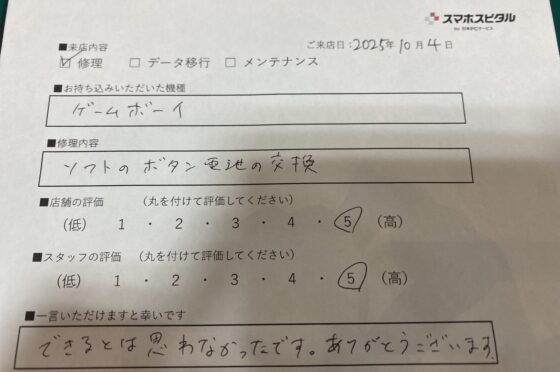 スマホスピタル
by 日本PCサービス
ご来店日：2025年10月4日
■来店内容
☑ 修理 □ データ移行 □ メンテナンス
■お持ち込みいただいた機種
ゲームボーイ
■修理内容
ソフトのボタン電池の交換
■店舗の評価 （丸を付けて評価してください）
（低） 1 ・ 2 ・ 3 ・ 4 ・ 5 （高）
■スタッフの評価 （丸を付けて評価してください）
（低） 1 ・ 2 ・ 3 ・ 4 ・ 5 （高）
■一言いただけますと幸いです
できるとは思わなかったです。ありがとうございます。